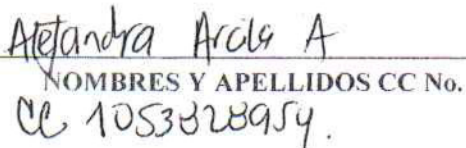 Alejandra Arcila A
NOMBRES Y APELLIDOS CC No.
CC 1053828954.